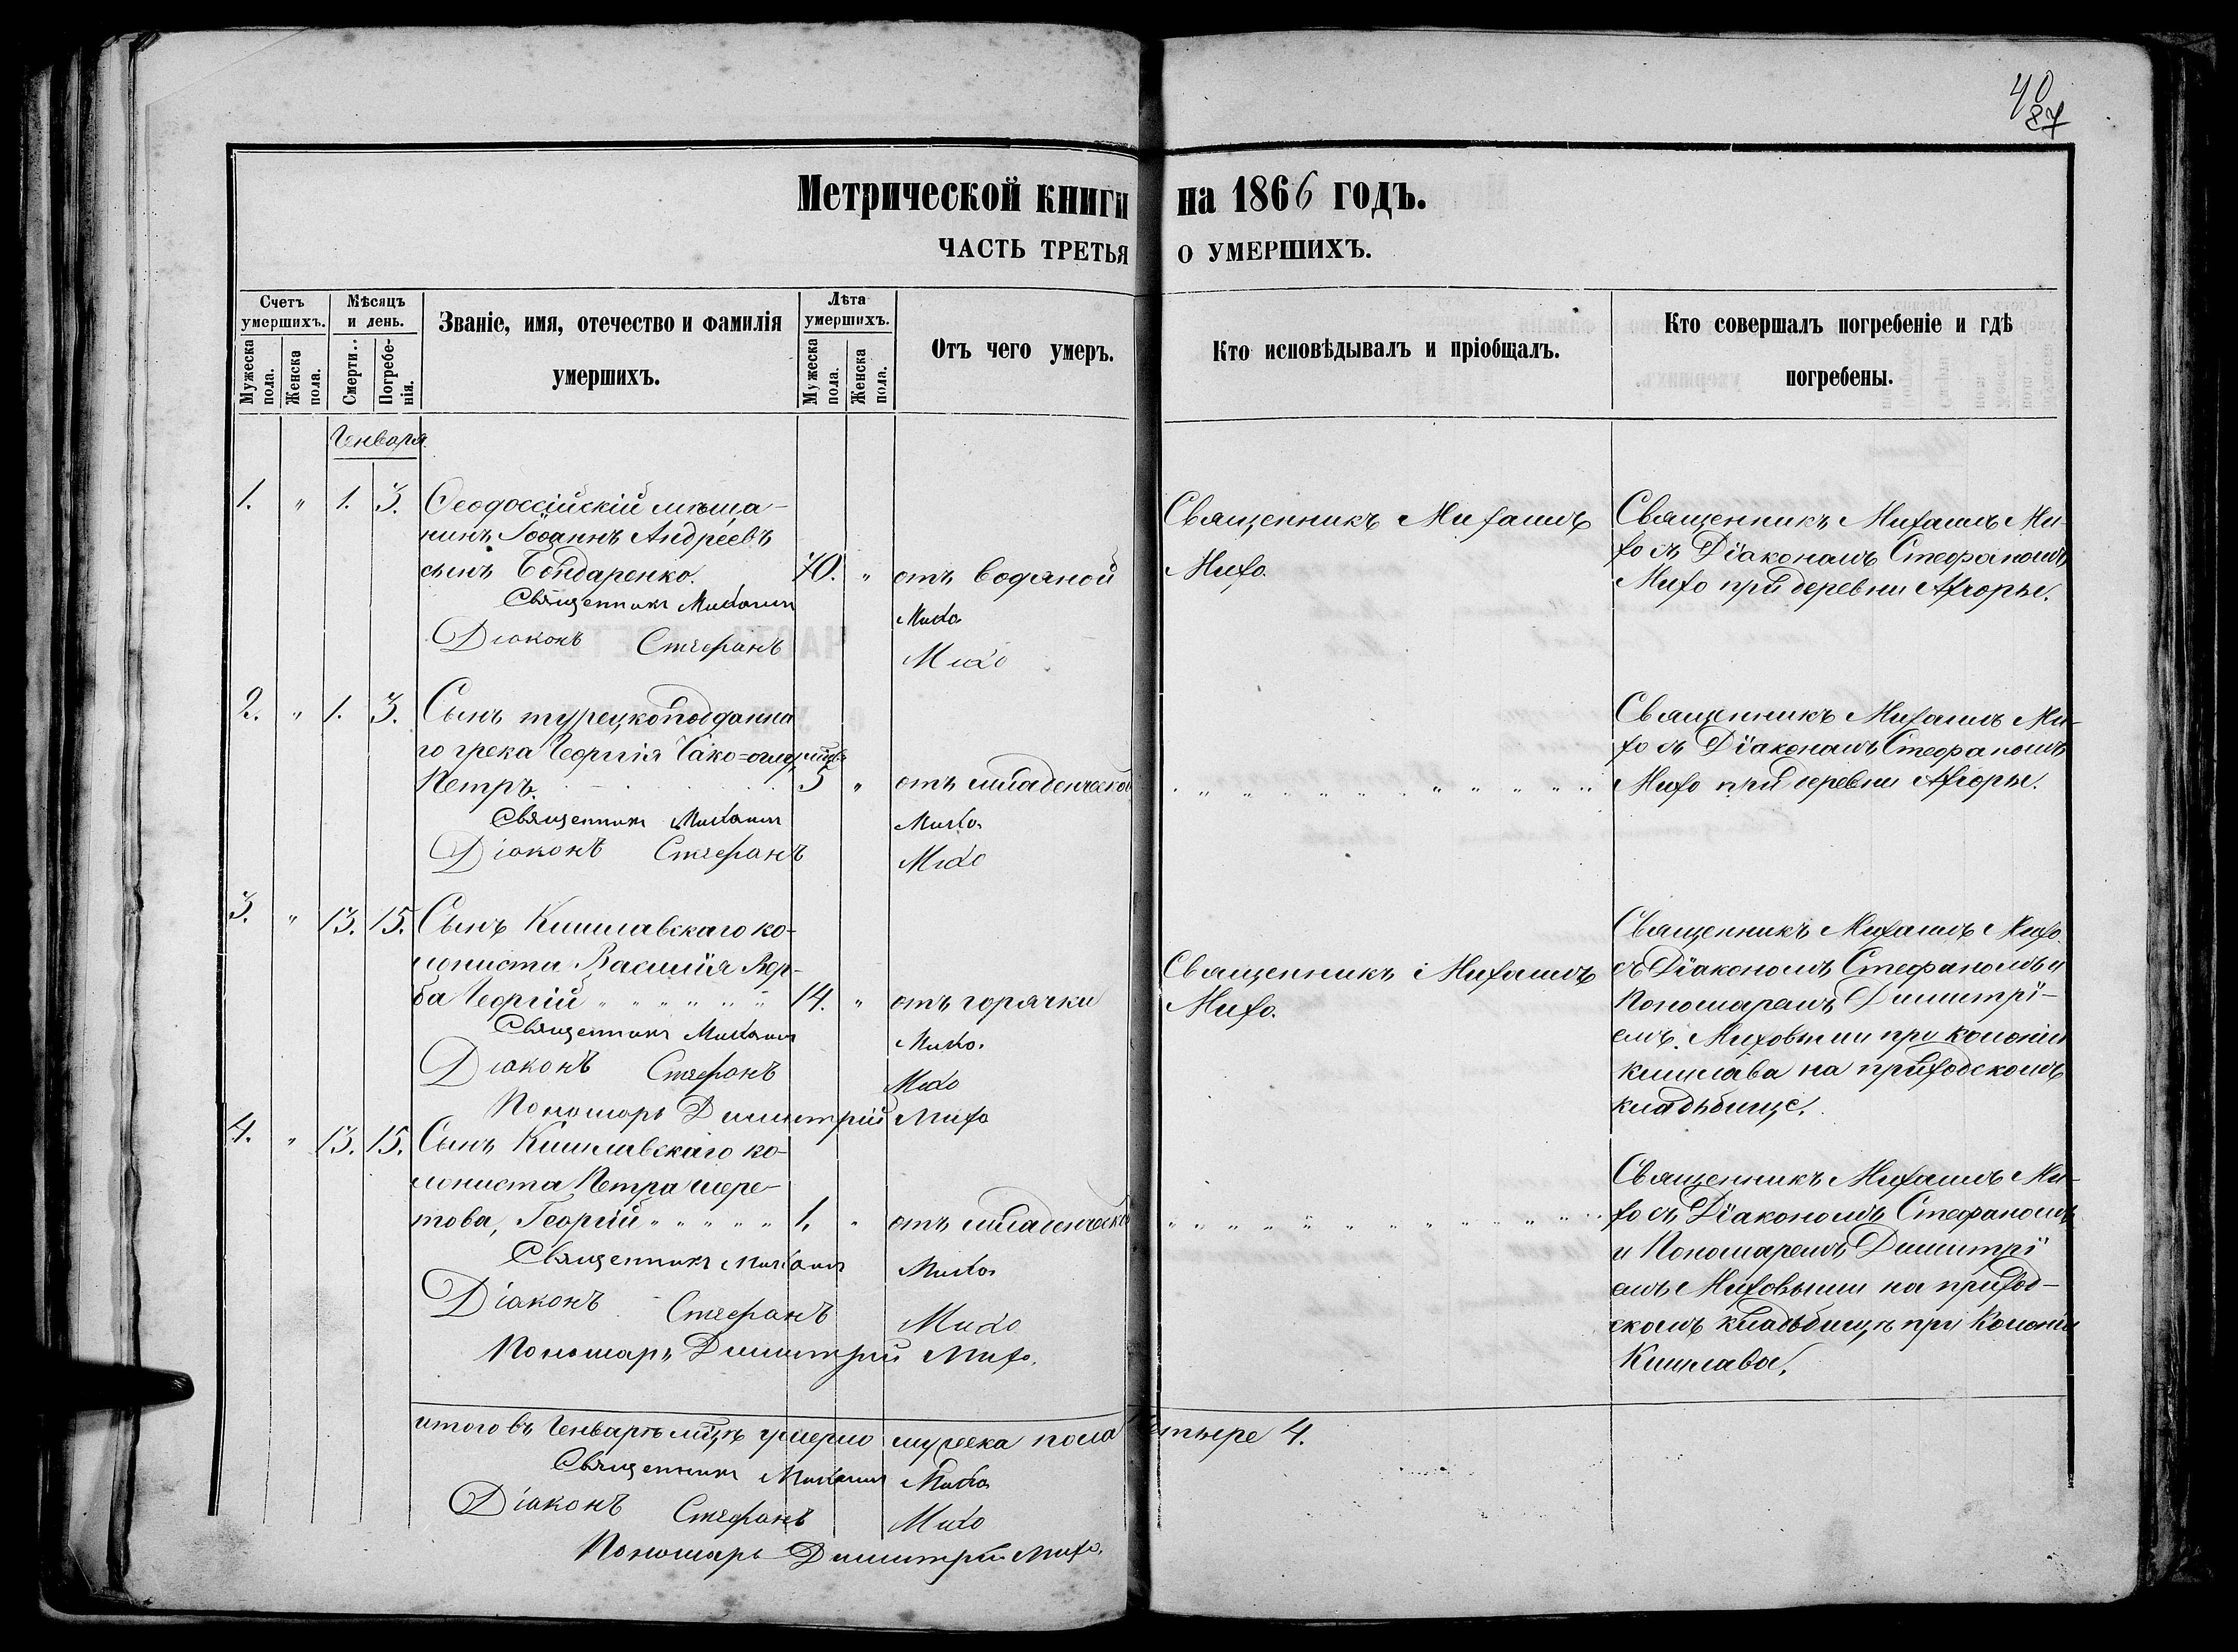 40
87
Метрической книги на 1866 годъ.
ЧАСТЬ ТРЕТЬЯ О УМЕРШИХЪ.
Счетъ умершихъ.
Мужеска пола.
Женска пола.
Мѣсяцъ и день.
Смерти.
Погребенія.
Званіе, имя, отечество и фамилія умершихъ.
Лѣта умершихъ.
Мужеска пола.
Женска пола.
Отъ чего умеръ.
Кто исповѣдывалъ и пріобщалъ.
Кто совершалъ погребеніе и гдѣ погребены.
Генваря
1. „ 1. 3. Ѳеодоссійскій мѣща-
нинъ Іоаннъ Андреевъ
сынъ Бондаренко. 70. „ отъ водяной
Священникъ Михаилъ Михо
Діаконъ Стефанъ Михо
Священникъ Михаилъ
Михо.
Священникъ Михаилъ Ми-
хо съ Діакономъ Стефаномъ
Михо при деревни
2. „ 1. 3. Сынъ турецкоподданна
го грека Георгія
Петръ. 5 „ отъ младенческой
Священникъ Михаилъ Михо
Діаконъ Стефанъ Михо
Священникъ Михаилъ Ми-
хо съ Діакономъ Стефаномъ
Михо при деревни
3. „ 13. 15. Сынъ Кишлавскаго ко-
лониста Василія Вер-
ба Георгій 14. „ отъ горячки
Священникъ Михаилъ Михо.
Діаконъ Стефанъ Михо
Пономарь Димитрій Михо
Священникъ Михаилъ
Михо.
Священникъ Михаилъ Михо.
съ Діакономъ Стефаномъ и
Пономаремъ Димитрі-
емъ Миховыми при колоніи
Кишлава на приходскомъ
кладьбище.
4. „ 13. 15. Сынъ Кишлавскаго ко-
лониста Петра
Георгій 1. „ отъ младенческой
Священникъ Михаилъ Михо
Діаконъ Стефанъ Михо
Пономарь Димитрій Михо.
Священникъ Михаилъ Ми-
хо съ Діакономъ Стефаномъ
и Пономаремъ Димитрі
емъ Миховыми на приход-
скомъ кладьбищѣ при Колоніи
Кишлава.
итого въ Генварѣ мцѣ умерло мужеска пола четыре 4.
Священникъ Михаилъ Михо
Діаконъ Стефанъ Михо
Пономарь Димитрій Михо.